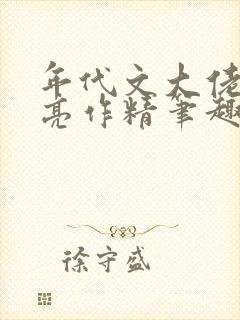 年代文大佬
亮作精笔趣
徐守盛